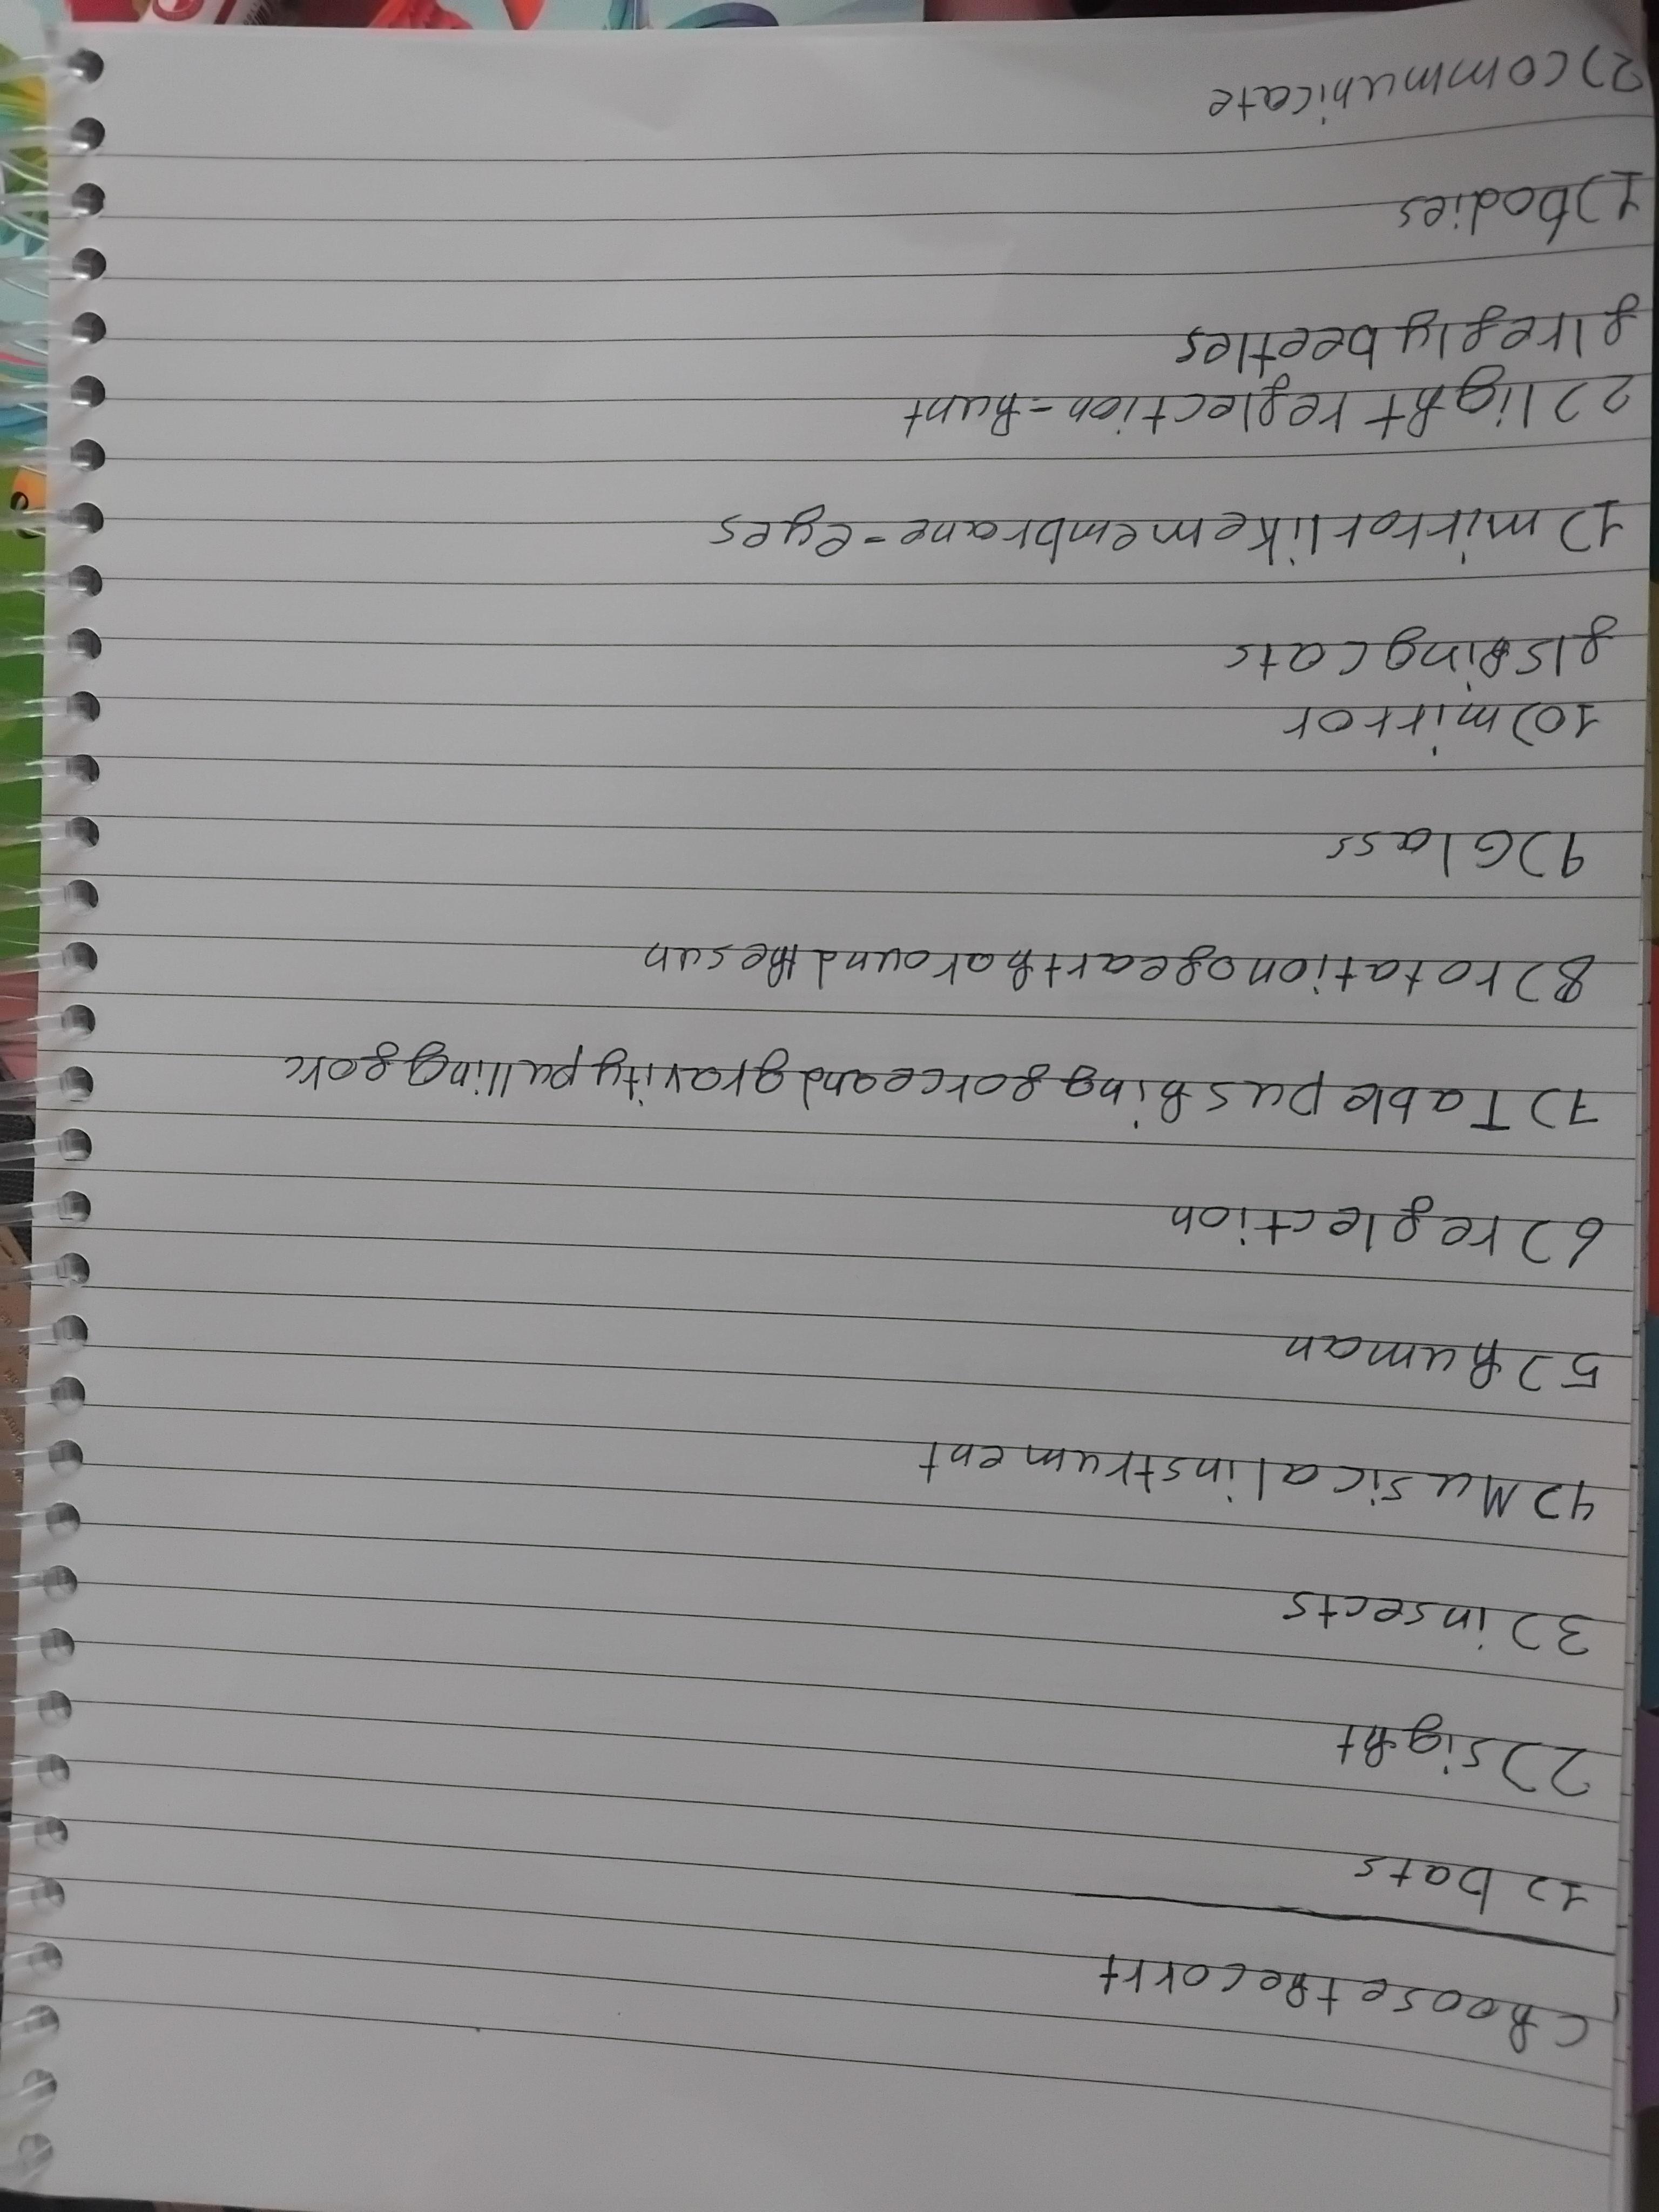 choose the corrt
1) bats
2) sight
3) insects
4) Musical instrument
5) human
6) reflection
7) Table pushing force and gravity pulling forc
8) rotation of earth around the sun
9) Glass
10) mirror
fishing cats
1) mirror like membrane - eyes
2) light reflection - hunt
firefly beetles
1) bodies
2) communicate